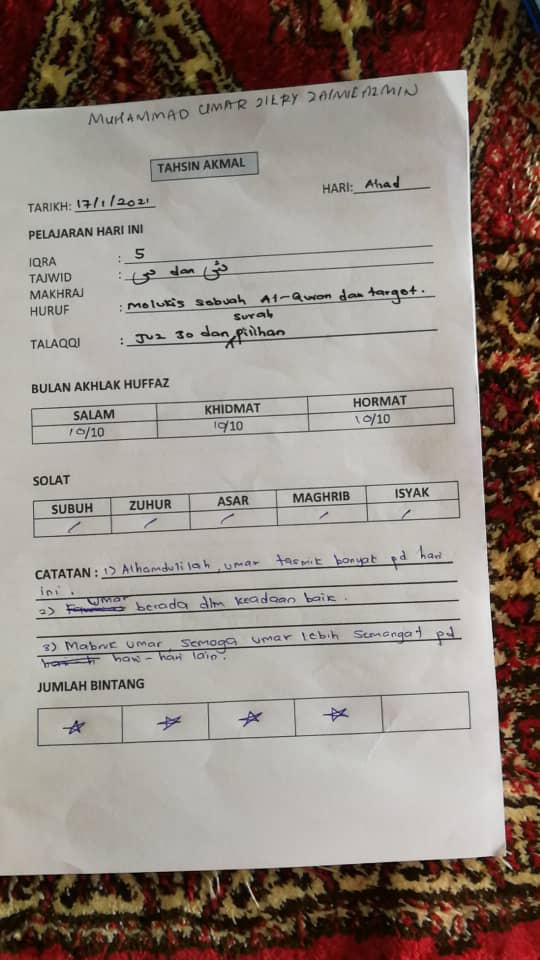 MUHAMMAD UMAR ZIKRY ZAIMIE AZMIN
TAHSIN AKMAL
TARIKH: 17/1/2021 HARI: Ahad
PELAJARAN HARI INI
IQRA : 5
TAJWID : dan
MAKHRAJ
HURUF : Melukis sebuah Al-Quran dan target.
surah
TALAQQI : Juz 30 dan pilihan
BULAN AKHLAK HUFFAZ
SALAM KHIDMAT HORMAT
10/10 10/10 10/10
SOLAT
SUBUH ZUHUR ASAR MAGHRIB ISYAK
/ / / / /
CATATAN : 1) Alhamdulilah, umar tasmik banyak pd hari
ini.
2) Umar berada dlm keadaan baik.
3) Mabruk umar, semoga umar lebih semangat pd
hari-hari lain.
JUMLAH BINTANG